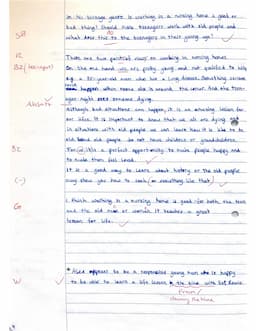 In No teenage years. Is working in a nursing home a good or
bad thing? Should male teenagers work with old people and
what does this do to the teenagers in their young age?
There are two points of view on working in nursing homes.
On the one hand are pretty young and not qualified to help
e.g. a 85-year-old man who has a lung disease. Something serious
happen when noone else is around the corner. And the teen-
ager might sees someone dying.
Although bad situations can happen, it is an amazing lesson for
our life. It is important to know that we all are dying.
In situations with old people we can learn how it is like to be
old. Some old people do not have children or grandchildren.
For it is a perfect opportunity to make people happy and
to make them feel loved.
It is a good way to learn about history or the old people
may show you how to cook (or something like that)
I think working in a nursing home is good for both the teen
and the old man or woman. It teaches a great
lesson for life.
* Alex appears to be a responsible young man who is happy
to be able to learn a life lesson the time with
SB
R
B2 (teenager)
Absatz
B2
(-)
G
W
from
during the time